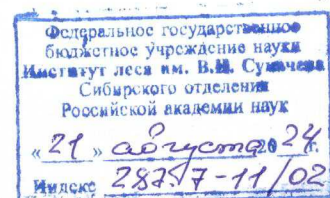 Федеральное государственное
бюджетное учреждение науки
Институт леса им. В.Н. Сукачева
Сибирского отделения
Российской академии наук
« 21 » августа 2024 г.
Индекс